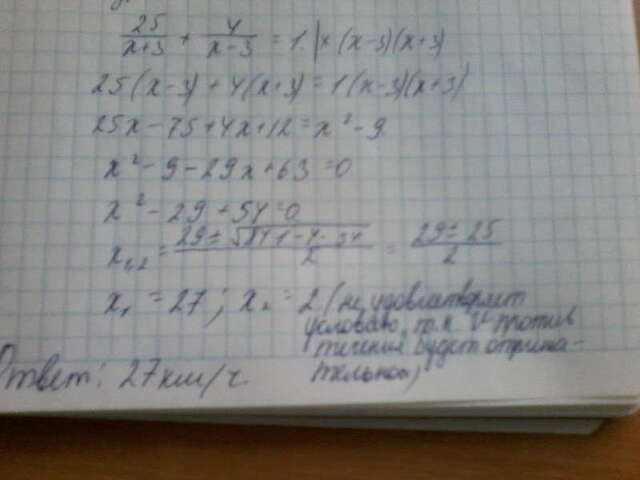 25/(x+3) + 4/(x-3) = 1 | × (x-3)(x+3)
25(x-3) + 4(x+3) = 1(x-3)(x+3)
25x - 75 + 4x + 12 = x² - 9
x² - 9 - 29x + 63 = 0
x² - 29 + 54 = 0
x₁,₂ = (29 ± √(841 - 4· 54))/2 = (29 ± 25)/2
x₁ = 27; x₂ = 2 (не удовлетворяет
условию, т.к V против
течения будет отрица-
тельной)
Ответ: 27 км/ч.